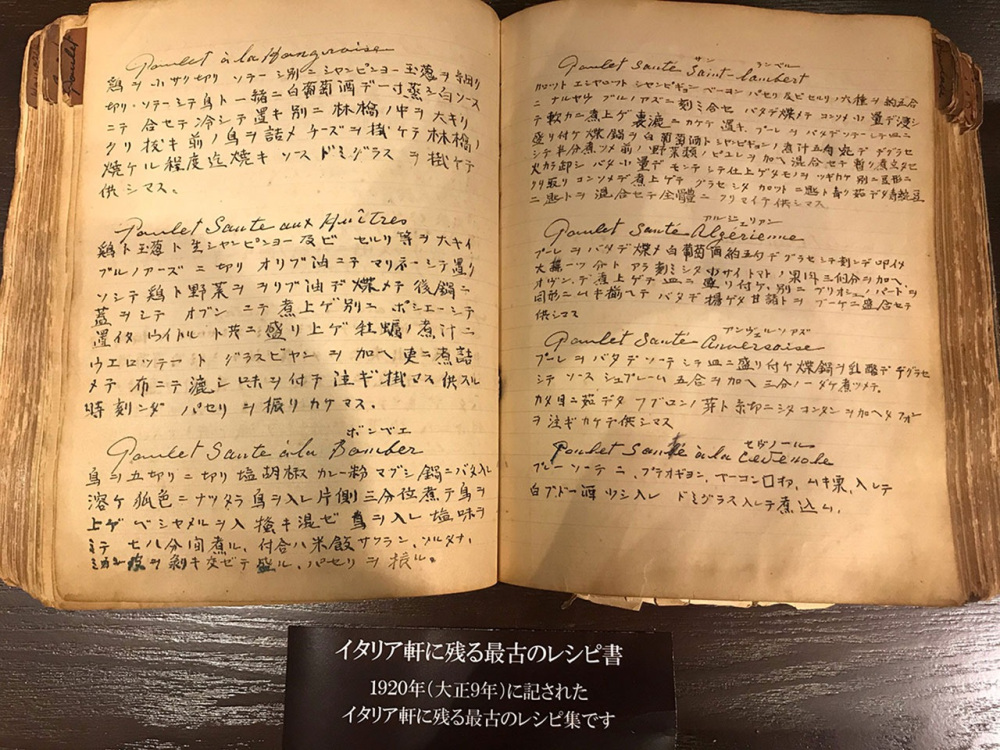 Poulet à la Hongroise
鶏ヲ小サク切リソテーシ別ニシャンピンヨー玉葱ヲ
切リソテーシテ鳥ト一緒ニ白葡萄酒デ一寸蒸シ白ソース
ニテ合セテ冷シテ置キ別ニ林檎ノ中ヲ大キク
クリ抜キ前ノ鳥ヲ詰メチーズヲ掛ケテ林檎ノ
焼ケル程度迄焼キソースドミグラスヲ掛ケテ
供シマス。
Poulet Saute aux Huîtres
鶏ト玉葱ト生シャンピンヨー及ビセルリ等ヲ大キイ
ブルノアーズニ切リオリブ油ニテマリネーシテ置キ
ソシテ鶏ト野菜ヲヲリブ油デ煠メテ後鍋ニ
蓋ヲシテオブンニテ煮上ゲ別ニポシエーシテ
置イタウイトルト共ニ盛リ上ゲ牡蠣ノ煮汁ニ
ウエロッテートグラスビヤンヲ加ヘ更ニ煮詰
メテ布ニテ漉シ味ヲ付テ注ギ掛マス供スル
時刻ンダパセリヲ振リカケマス。
ボンベエ
Poulet Saute à la Bomber
鳥ヲ五切リニ切リ塩胡椒カレー粉マブシ鍋ニバタ入レ
溶ケ狐色ニナッタラ鳥ヲ入レ片側三分位煮テ鳥ヲ
上ゲベシヤメルヲ入掻キ混ゼ鳥ヲ入レ塩味ヲ
ミテ七八分間煮ル、付合ハ米飯サフラン、ソルタナ、
皮ヲ剥キ交ゼテ盛ル、パセリヲ振ル。
サン ランベル
Poulet Sauté Saint-Lambert
カロットエシャロットシャンピギョンベーコンパセリ及ビセルリノ六種ヲ約五合
ニナルヤウブルノアズニ刻ミ合セバタデ煠メテコンソメ小量デ浸シ
テ軟カニ煮上ゲ裏漉ニカケテ置キ、プーレヲバタデソテーシテ皿ニ
盛リ付ケ煠鍋ヲ白葡萄酒トシャンピギョンノ煮汁五勺宛デデグラセ
シテ半分煮ツメ前ノ野菜類ノピユレヲ加ヘ混合セテ暫ク煮立タセ
火カラ卸シバタ小量デモンテシテ仕上ゲタモノヲツギカケ別ニ豆形ニ
クリ取リコンソメデ煮上ゲテグラセシタカロット二匙ト青ク茹デタ青豌豆
二匙トヲ混合セテ全體ニフリマイテ供シマス
アルジェリアン
Poulet Sauté Algérienne
プーレヲバタデ煠メ白葡萄酒約五勺デグラセシテ刻シデ叩イタ
大蒜一ツ分トアラ刻ミシタ中サイトマトノ果肉三個分ヲ加ヘ、
オヴンデ煮上ゲテ皿ニ盛リ付ケ、別ニブリオシェ、パートヲ
同形ニムキ揃ヘテバタデ揚ゲタ甘藷トヲブーケニ置合セテ
供シマス
アンヴェルソアズ
Poulet Sauté Anversoise
プーレヲバタデソーテシテ皿ニ盛リ付ケ煠鍋ヲ乳酪デデグラセ
シテソースシュプレーム五合ヲ加ヘ三分ノ一ダケ煮ツメテ、
カタ目ニ茹デタフブロンノ芽ト糸切ニシタコンタンヲ加ヘタフォン
ヲ注ギカケテ供シマス
セヴノール
Poulet Sauté à la Cevenole
プレーソーテニ、プテオギヨン、ベーコン口切、ムキ栗、入レテ
白ブドー酒少シ入レ ドミグラス入レテ煮込ム。
Poulet
イタリア軒に残る最古のレシピ書
1920年（大正9年）に記された
イタリア軒に残る最古のレシピ集です